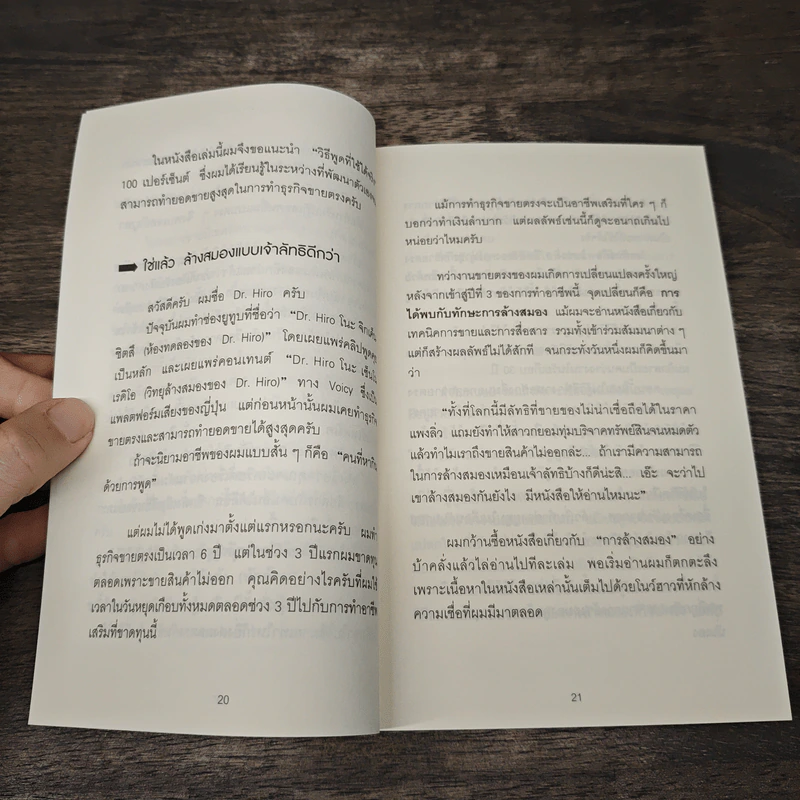 ในหนังสือเล่มนี้ผมจึงขอแนะนำ “วิธีพูดที่ใช้ได้จริง
100 เปอร์เซ็นต์ ซึ่งผมได้เรียนรู้ในระหว่างที่พัฒนาตัวเองจน
สามารถทำยอดขายสูงสุดในการทำธุรกิจขายตรงครับ
ใช่แล้ว ล้างสมองแบบเจ้าลัทธิดีกว่า
สวัสดีครับ ผมชื่อ Dr. Hiro ครับ
ปัจจุบันผมทำช่องยูทูบที่ชื่อว่า “Dr. Hiro โนะ จิกเค็น
ชิตสึ (ห้องทดลองของ Dr. Hiro)” โดยเผยแพร่คลิปพูดคุย
เป็นหลัก และเผยแพร่คอนเทนต์ “Dr. Hiro โนะ เซ็นโน
เรดิโอ (วิทยุล้างสมองของ Dr. Hiro)” ทาง Voicy ซึ่งเป็น
แพลตฟอร์มเสียงของญี่ปุ่น แต่ก่อนหน้านั้นผมเคยทำธุรกิจ
ขายตรงและสามารถทำยอดขายได้สูงสุดครับ
ถ้าจะนิยามอาชีพของผมแบบสั้น ๆ ก็คือ “คนที่หากิน
ด้วยการพูด”
แต่ผมไม่ได้พูดเก่งมาตั้งแต่แรกหรอกนะครับ ผมทำ
ธุรกิจขายตรงเป็นเวลา 6 ปี แต่ในช่วง 3 ปีแรกผมขาดทุน
ตลอดเพราะขายสินค้าไม่ออก คุณคิดอย่างไรครับที่ผมใช้
เวลาในวันหยุดเกือบทั้งหมดตลอดช่วง 3 ปีไปกับการทำอาชีพ
เสริมที่ขาดทุนนี้
20
แม้การทำธุรกิจขายตรงจะเป็นอาชีพเสริมที่ใคร ๆ ก็
บอกว่าทำเงินลำบาก แต่ผลลัพธ์เช่นนี้ก็ดูจะอนาถเกินไป
หน่อยว่าไหมครับ
ทว่างานขายตรงของผมเกิดการเปลี่ยนแปลงครั้งใหญ่
หลังจากเข้าสู่ปีที่ 3 ของการทำอาชีพนี้ จุดเปลี่ยนก็คือ การ
ได้พบกับทักษะการล้างสมอง แม้ผมจะอ่านหนังสือเกี่ยวกับ
เทคนิคการขายและการสื่อสาร รวมทั้งเข้าร่วมสัมมนาต่าง ๆ
แต่ก็สร้างผลลัพธ์ไม่ได้สักที จนกระทั่งวันหนึ่งผมก็คิดขึ้นมา
ว่า
“ทั้งที่โลกนี้มีลัทธิที่ขายของไม่น่าเชื่อถือได้ในราคา
แพงลิ่ว แถมยังทำให้สาวกยอมทุ่มบริจาคทรัพย์สินจนหมดตัว
แล้วทำไมเราถึงขายสินค้าไม่ออกล่ะ... ถ้าเรามีความสามารถ
ในการล้างสมองเหมือนเจ้าลัทธิบ้างก็ดีน่ะสิ... เอ๊ะ จะว่าไป
เขาล้างสมองกันยังไง มีหนังสือให้อ่านไหมนะ”
ผมกว้านซื้อหนังสือเกี่ยวกับ “การล้างสมอง” อย่าง
บ้าคลั่งแล้วไล่อ่านไปทีละเล่ม พอเริ่มอ่านผมก็ตกตะลึง
เพราะเนื้อหาในหนังสือเหล่านั้นเต็มไปด้วยโนว์ฮาวที่หักล้าง
ความเชื่อที่ผมมีมาตลอด
21